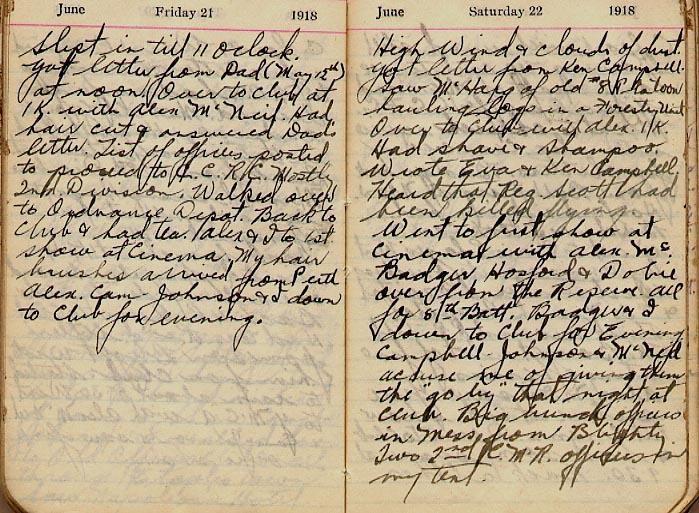 June Friday 21 1918
Slept in till 11 oclock.
Got letter from Dad (May 12th)
at noon. Over to Club at
1K. with Alex McNeil. Had
hair cut & answered Dads
letter. List of officers posted
to proceed to C.C.R.C. Mostly
2nd Division. Walked over
to Ordnance Depot. Back to
Club & had tea. Alex & I to 1st
show at Cinema. My hair
brushes arrived from Perth
Alex. Cam Johnson & I down
to Club for evening.
June Saturday 22 1918
High Wind & clouds of dust.
Got letter from Ken Campbell.
Saw McHarg of old #8 Platoon
hauling logs in a Forestry Unit
Over to Club with Alex. 1K.
Had shave & shampoo
Wrote Eva & Ken Campbell
Heard that Reg Scott had
been killed flying.
Went to first show at
Cinema with Alex. Mc.
Badger Hosford & Dobie
over from the Reserve all
for 8th Batt. Badger & I
down to Club for Evening
Campbell. Johnson & McNeil
accuse me of giving them
the "go by" that night at
Club. Big bunch officers
in Mess from Blighty
Two 2nd C.M.R. officers in
my tent.